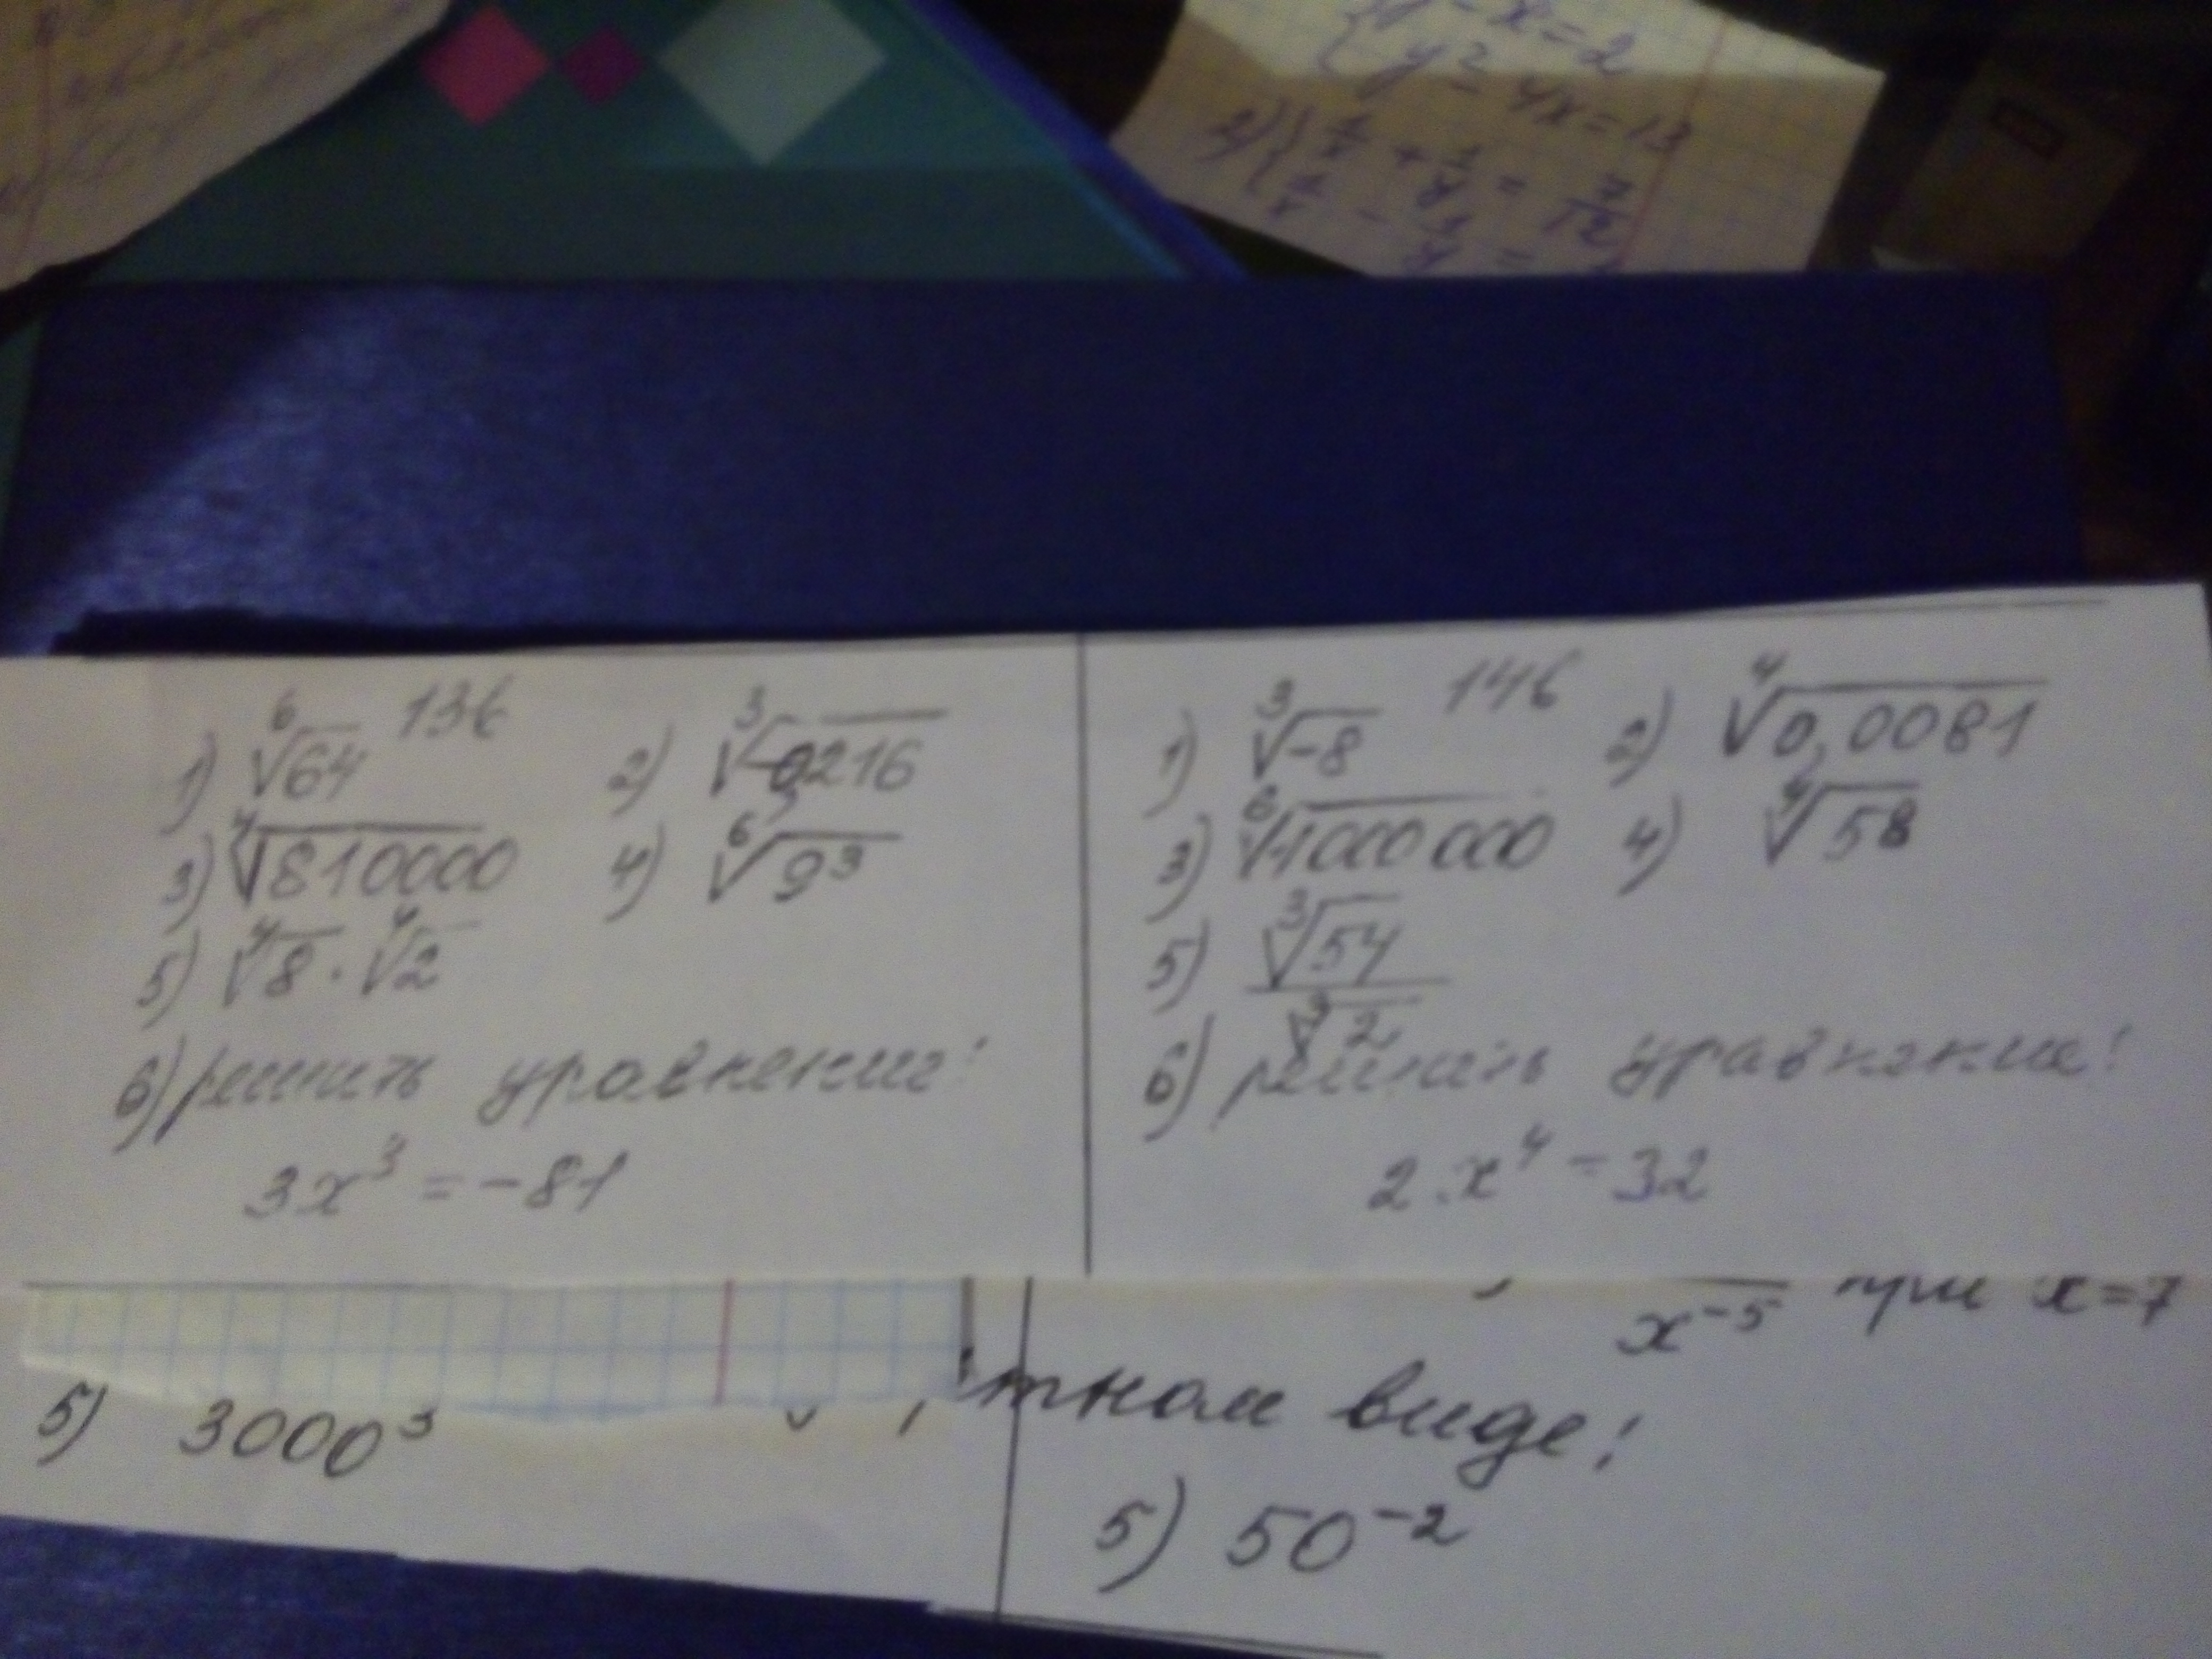 y-x=2
y²-4x=13
+ = 7/12
13б
1) ⁶√64 2) ³√-0,216
3) ⁴√810000 4) ⁶√9³
5) ⁴√8 · ⁴√2
6) решить уравнение:
3x³ = -81
14б
1) ³√-8 2) ⁴√0,0081
3) ⁶√1000000 4) ⁴√5⁸
5) ³√54 / ³√2
6) решить уравнение:
2x⁴ = 32
x⁻⁵ при x=7
5) 3000³
тном виде:
5) 50⁻²